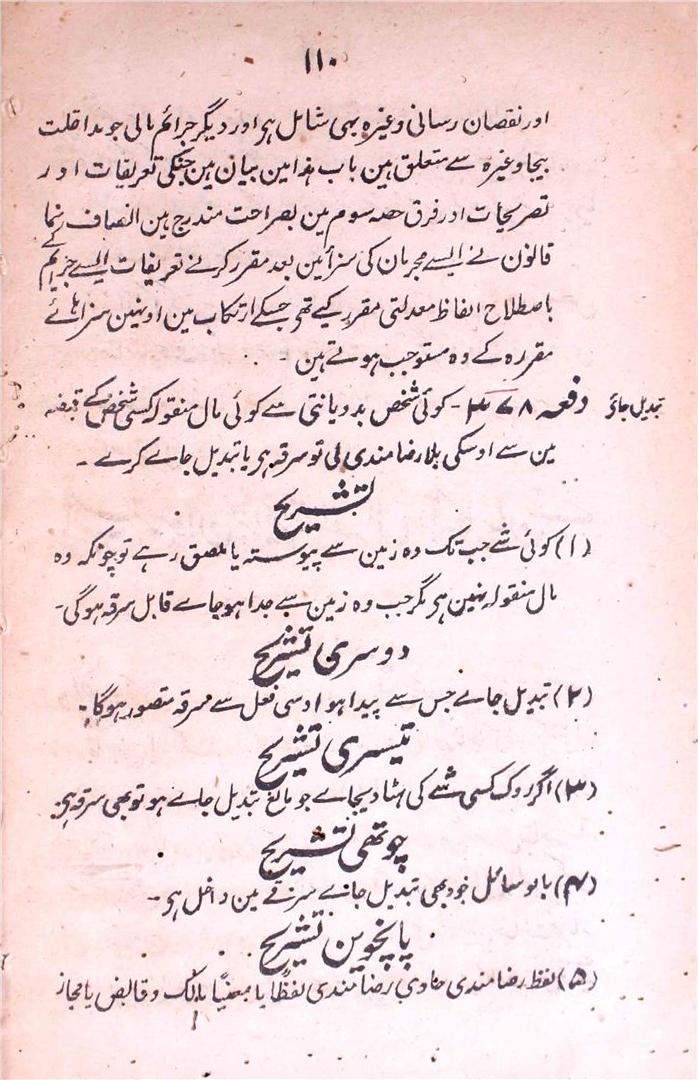 ۱۱۰
اور نقصان رسانی وغیرہ بہی شامل ہی اور دیگر جرائم مالی جو مداخلت
بیجا وغیرہ سے متعلق ہین باب ہذا مین بیان ہین جنکی تعریفات اور
تصریحات اور فرق حصہ سوم مین بصراحت مندرج ہین انصاف رنما
قانون نے ایسے مجرمان کی سزائین بعد مقرر کرنے تعریفات ایسے جرائم کے
باصطلاح الفاظ معدلتی مقرر کیے تھی جسکے ارتکاب مین اونہین سزاہائے
مقررہ کے وہ مستوجب ہوتے ہین
تبدیل جائے
دفعہ ۳۷۸ - کوئی شخص بددیانتی سے کوئی مال منقولہ کسی شخص کے قبضہ
مین سے اوسکی بلارضامندی لی تو سرقہ ہی یا تبدیل جاے کرے -
تشریح
(۱) کوئی شے جب تک وہ زمین سے پیوستہ یا ملصق رہے تو چونکہ وہ
مال منقولہ نہین ہی مگر جب وہ زمین سے جدا ہو جاے قابل سرقہ ہوگی -
دوسری تشریح
(۲) تبدیل جاے جس سے پیدا ہو اوسی فعل سے سرقہ متصور ہوگا -
تیسری تشریح
(۳) اگر روک کسی شے کی ہٹا دیجاے جو مانع تبدیل جاے ہو تو بھی سرقہ ہی
چوتھی تشریح
(۴) بالوسائل خود بھی تبدیل جاے سرقے مین داخل ہی -
پانچوین تشریح
(۵) لفظ رضامندی حاوی رضامندی لفظاً یا معنیاً مالک و قابض یا مجاز